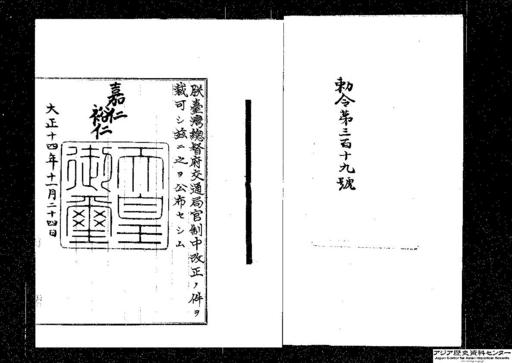 勅令第三百十九號
朕臺灣總督府交通局官制中改正ノ件ヲ
裁可シ茲ニ之ヲ公布セシム
嘉仁
裕仁
天皇
御璽
大正十四年十一月二十四日
アジア歴史資料センター
Japan Center for Asian Historical Records